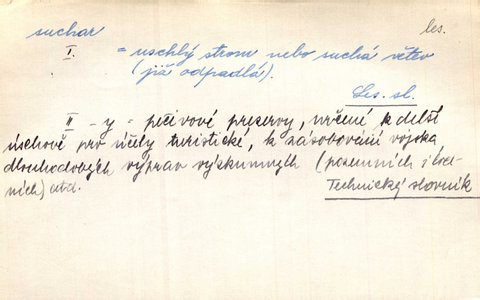 suchar les.
I. = uschlý strom nebo suchá větev
(již odpadlá).
Les. sl.
II -y = pečivové prezervy, určené k delší
úschově pro účely turistické, k zásobování vojska,
dlouhodobých výprav výzkumných (pozemních i vod-
ních) atd. Technický slovník